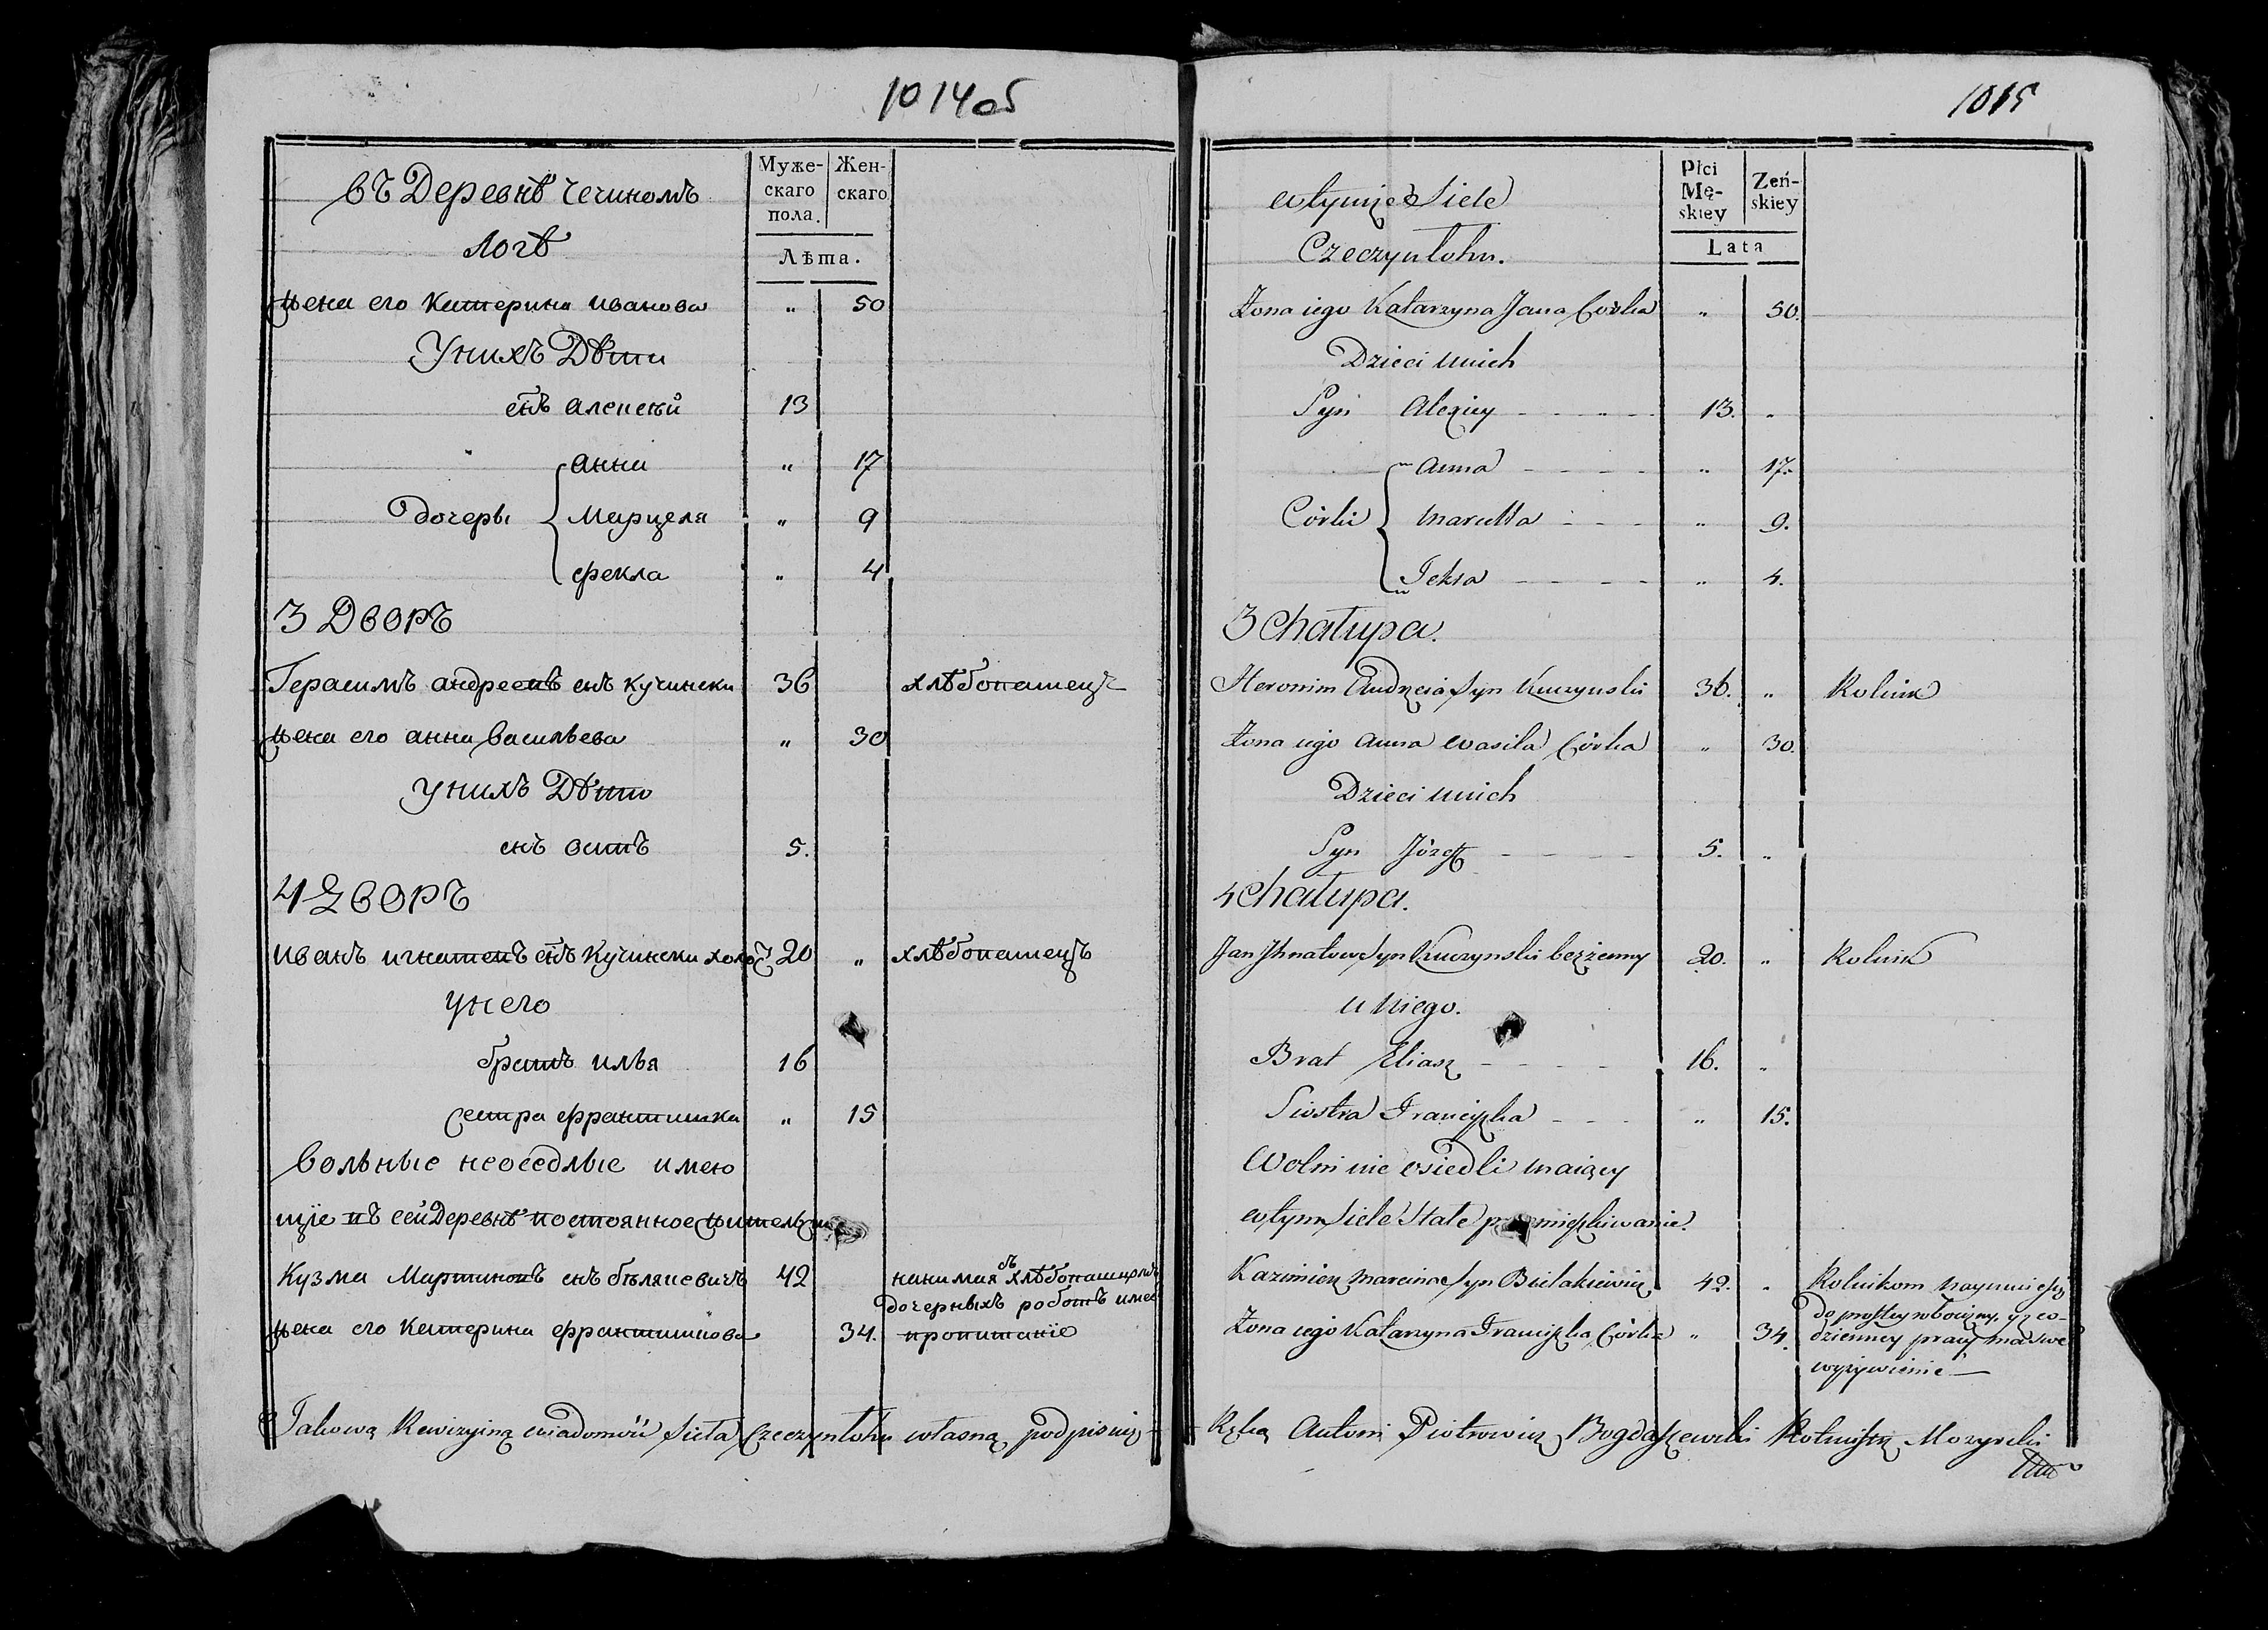 1014 об
въ Деревнѣ Чечиномъ
Логѣ
Муже-
скаго
пола.
Жен-
скаго
Лѣта.
жена его Катерина Иванова " 50
У нихъ Дѣти
снъ Алексѣй 13
Анна " 17
Дочеры Марцеля " 9
Фекла " 4
3 Дворъ
Герасимъ Андреевъ снъ Кучински 36 хлѣбопашецъ
жена его Анна Васильева " 30
У нихъ Дѣти
снъ Осипъ 5.
4 Дворъ
Иванъ Игнатевъ снъ Кучински холос 20 " хлѣбопашецъ
У него
братъ Илья 16
Сестра Францишка " 15
Вольные неоседлые имею
щіе въ сей Деревнѣ постоянное жительст
Кузма Мартиновъ снъ Белякевичъ 42 нанимая съ хлѣбопашцомъ
дочерныхъ роботъ имее
жена его Катерина Францишкова 34. пропитаніе
Takową Rewizyiną wiadomość Sieła Czeczyntohu własną podpisuię
1015
w tymże Siele
Czeczyntohu.
Płci
Mę-
skiey
Zeń-
skiey
Lata
Żona iego Katarzyna Jana Córka " 50.
Dzieci u nich
Syn Alexiey 13. "
Anna " 17.
Córki Marcella " 9.
Tekla " 4.
3 Chałupa.
Heronim Andrzeia Syn Kuczynski 36. " Rolnik
Żona iego Anna Wasila Córka " 30.
Dzieci u nich
Syn Józef 5. "
4 Chałupa.
Jan Ihnatow Syn Kuczynski bezżenny 20. " Rolnik
u Niego.
Brat Eliasz 16. "
Siostra Franciszka " 15.
Wolni nie osiedli maiący
w tym Siele Stałe przemieszkiwanie.
Kazimierz Marcina Syn Bielakiewicz 42. " Rolnikom naymuie się
do prostey robocizny, y z co-
Żona iego Katarzyna Franciszka Córka " 34. dzienney pracy ma swe
wyżywienie —
Ręką Antoni Piotrowicz Bogdaszewski Rotmistrz Mozyrski